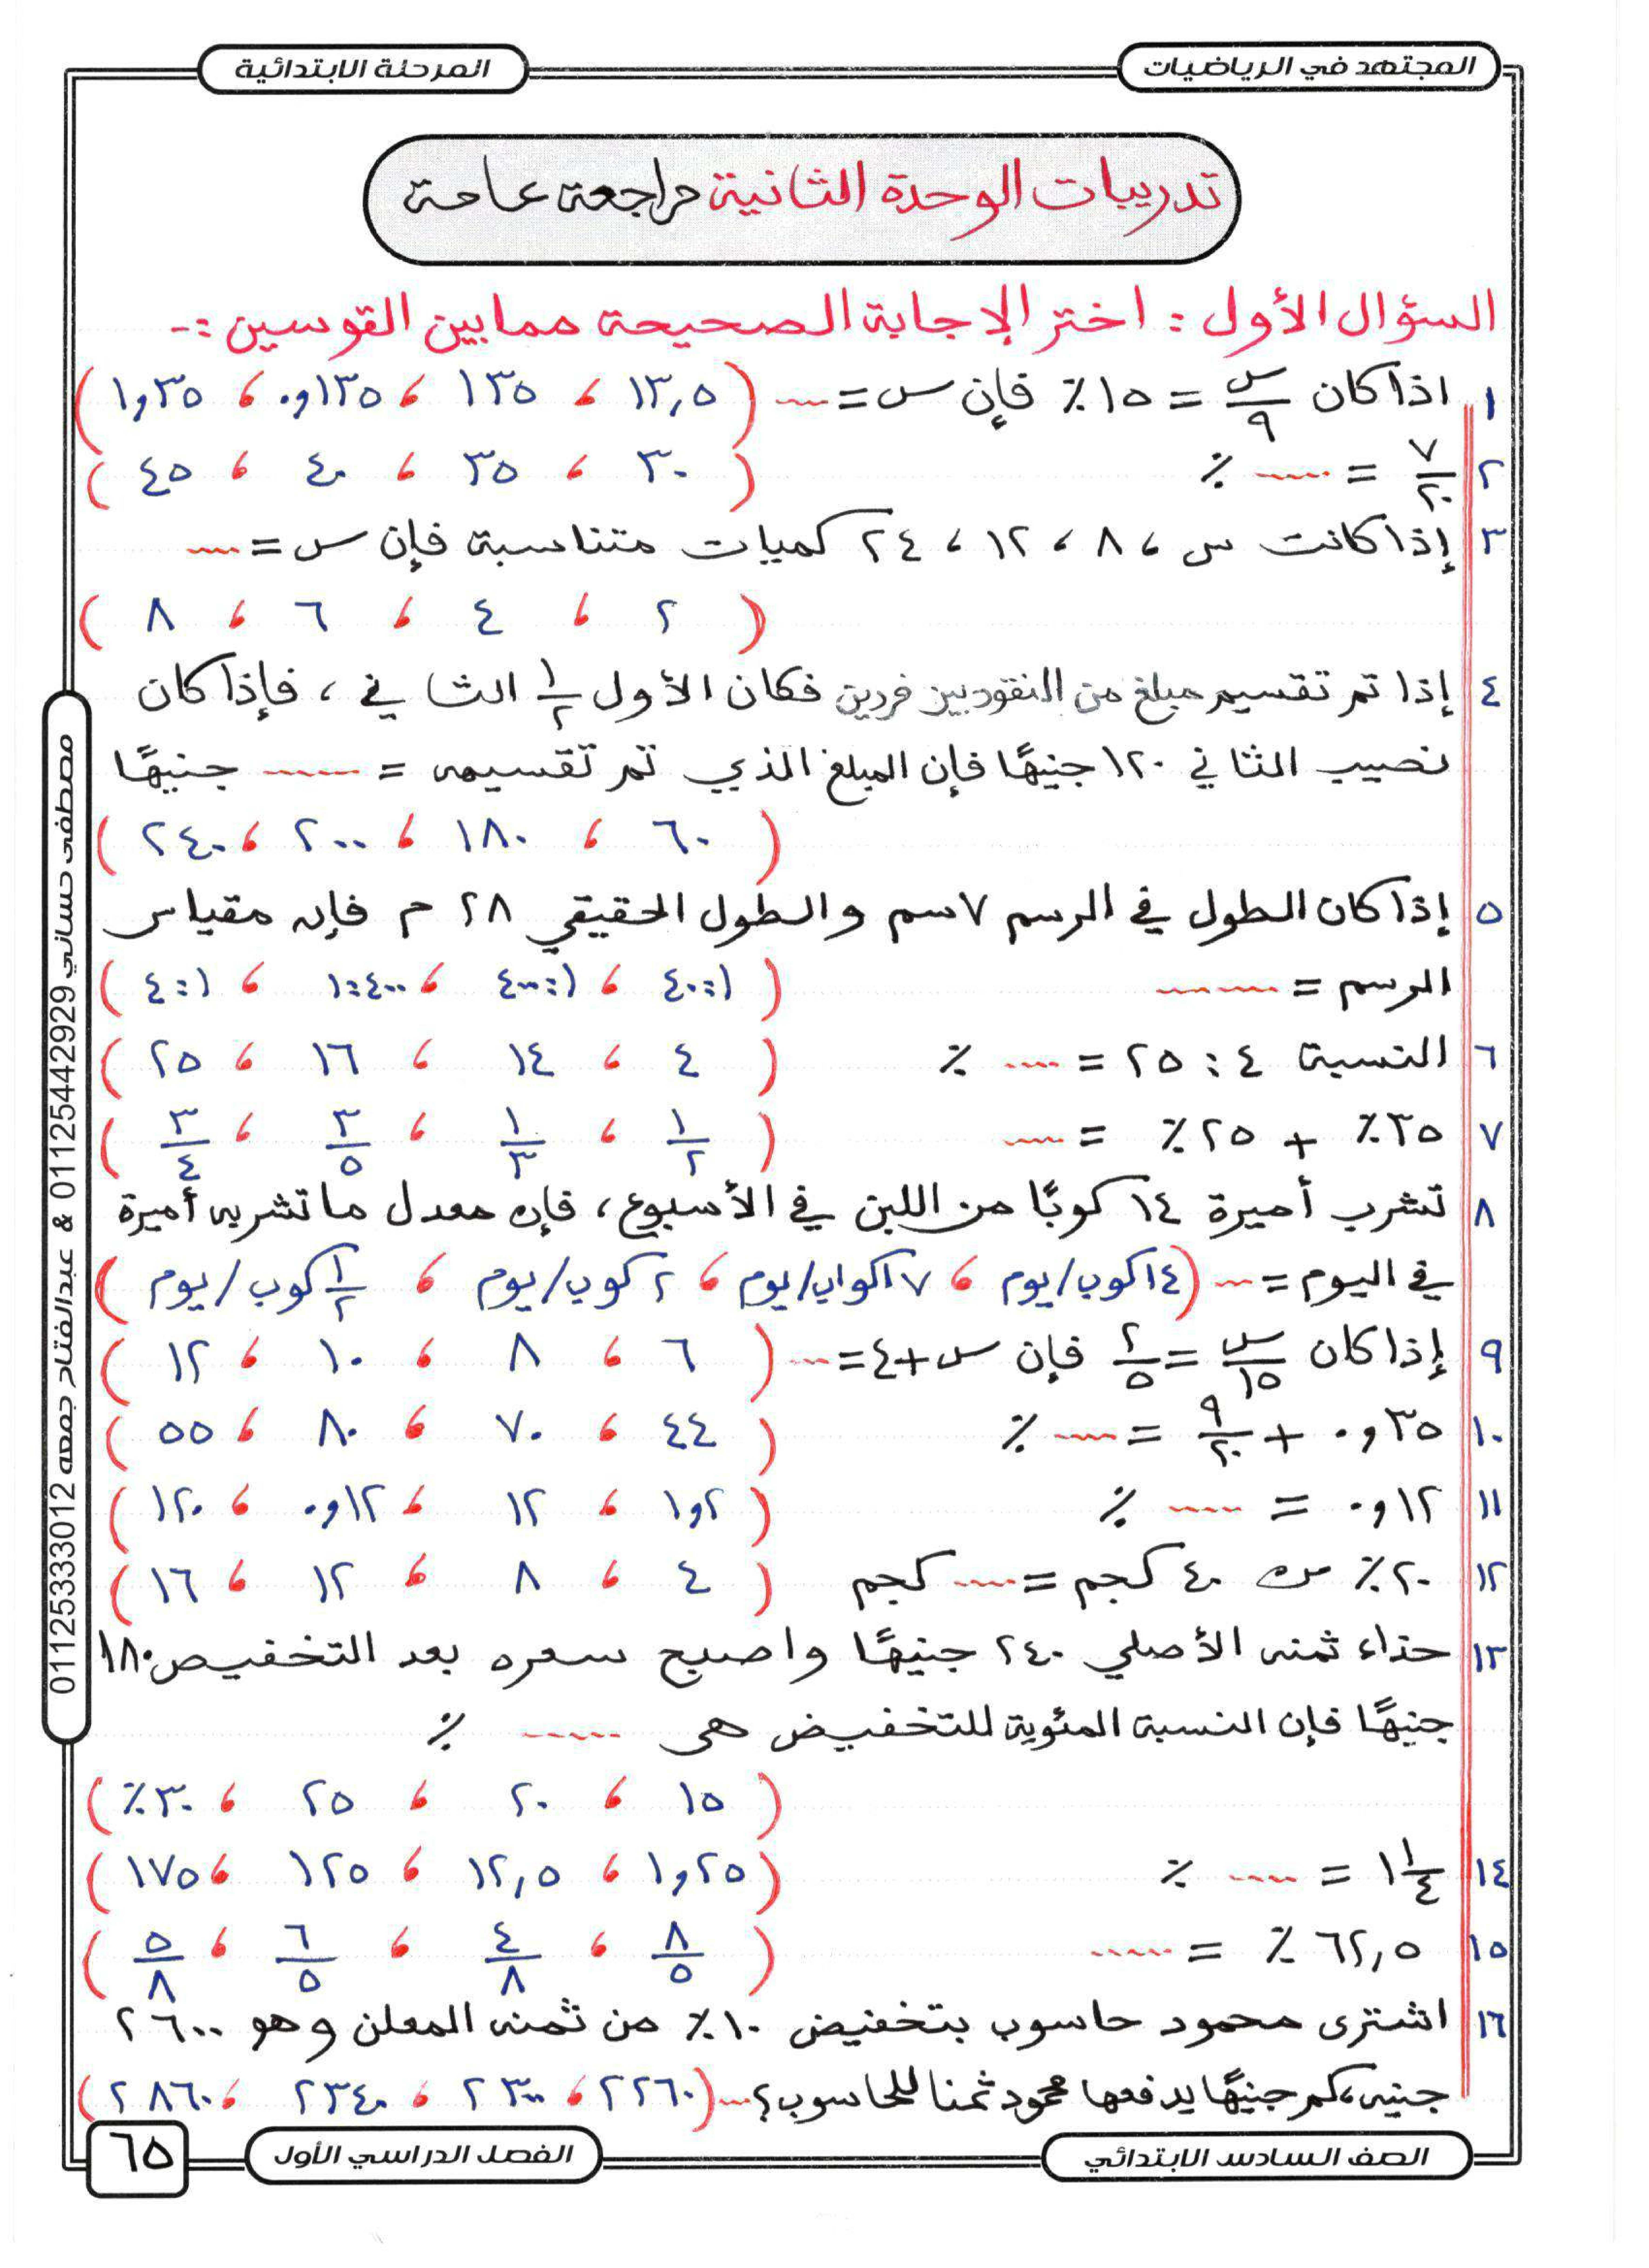 المجتهد في الرياضيات
المرحلة الابتدائية
تدريبات الوحدة الثانية مراجعة عامة
السؤال الأول : اختر الإجابة الصحيحة مما بين القوسين :-
١ اذا كان س/٩ = ١٥٪ فإن س = .... ( ١٣,٥ ، ١٣٥ ، ٠,١٣٥ ، ١,٣٥ )
٢ ٧/٢٠ = ..... ٪ ( ٣٠ ، ٣٥ ، ٤٠ ، ٤٥ )
٣ إذا كانت س ، ٨ ، ١٢ ، ٢٤ كميات متناسبة فإن س = ....
( ٢ ، ٤ ، ٦ ، ٨ )
٤ إذا تم تقسيم مبلغ من النقود بين فردين فكان الأول ١/٢ الثاني ، فإذا كان
نصيب الثاني ١٢٠ جنيهًا فإن المبلغ الذي تم تقسيمه = ..... جنيهًا
( ٦٠ ، ١٨٠ ، ٢٠٠ ، ٢٤٠ )
٥ إذا كان الطول في الرسم ٧ سم والطول الحقيقي ٢٨ م فإن مقياس
الرسم = ....... ( ١:٤٠ ، ١:٤٠٠ ، ٤٠٠:١ ، ١:٤ )
٦ النسبة ٤ : ٢٥ = .... ٪ ( ٤ ، ١٤ ، ١٦ ، ٢٥ )
٧ ٣٥٪ + ٢٥٪ = .... ( ١/٢ ، ١/٣ ، ٣/٥ ، ٣/٤ )
٨ تشرب أميرة ١٤ كوبًا من اللبن في الأسبوع ، فإن معدل ما تشربه أميرة
في اليوم = .... ( ١٤ كوب/يوم ، ٧ اكواب/يوم ، ٢ كوب/يوم ، ١/٢ كوب/يوم )
٩ إذا كان س/١٥ = ٢/٥ فإن س + ٤ = .... ( ٦ ، ٨ ، ١٠ ، ١٢ )
١٠ ٠,٣٥ + ٩/٢٠ = .... ٪ ( ٤٤ ، ٧٠ ، ٨٠ ، ٥٥ )
١١ ٠,١٢ = .... ٪ ( ١,٢ ، ١٢ ، ٠,١٢ ، ١٢٠ )
١٢ ٢٠٪ من ٤٠ كجم = .... كجم ( ٤ ، ٨ ، ١٢ ، ١٦ )
١٣ حذاء ثمنه الأصلي ٢٤٠ جنيهًا واصبح سعره بعد التخفيض ١٨٠
جنيهًا فإن النسبة المئوية للتخفيض هى ..... ٪
( ١٥ ، ٢٠ ، ٢٥ ، ٣٠٪ )
١٤ ١ ١/٤ = .... ٪ ( ١,٢٥ ، ١٢,٥ ، ١٢٥ ، ١٧٥ )
١٥ ٦٢,٥ ٪ = ..... ( ٨/٥ ، ٤/٨ ، ٦/٥ ، ٥/٨ )
١٦ اشترى محمود حاسوب بتخفيض ١٠٪ من ثمنه المعلن وهو ٢٦٠٠
جنيه ، كم جنيهًا يدفعها محمود ثمنا للحاسوب ؟ .... ( ٢٢٦٠ ، ٢٣٠٠ ، ٢٣٤٠ ، ٢٨٦٠ )
مصطفى حساني 01125442929 & عبدالفتاح جمعه 01125333012
الصف السادس الابتدائي
الفصل الدراسي الأول
٦٥